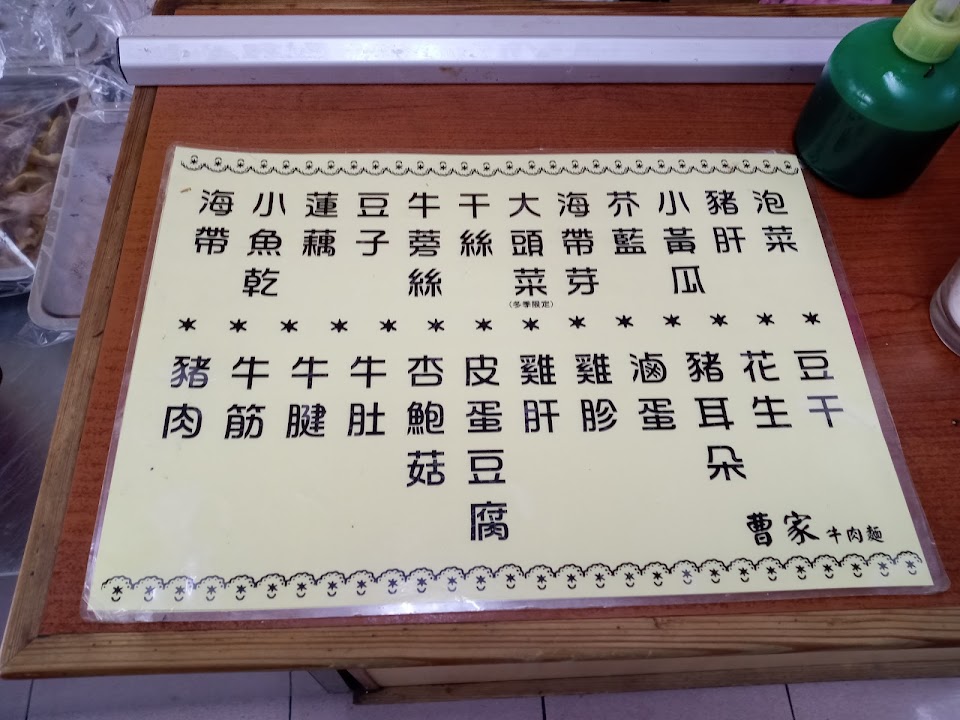 泡菜
豬肝
小黃瓜
芥藍
海帶芽
大頭菜
(冬季限定)
干絲
牛蒡絲
豆子
蓮藕
小魚乾
海帶
豆干
花生
豬耳朵
滷蛋
雞胗
雞肝
皮蛋豆腐
杏鮑菇
牛肚
牛腱
牛筋
豬肉
曹家牛肉麵